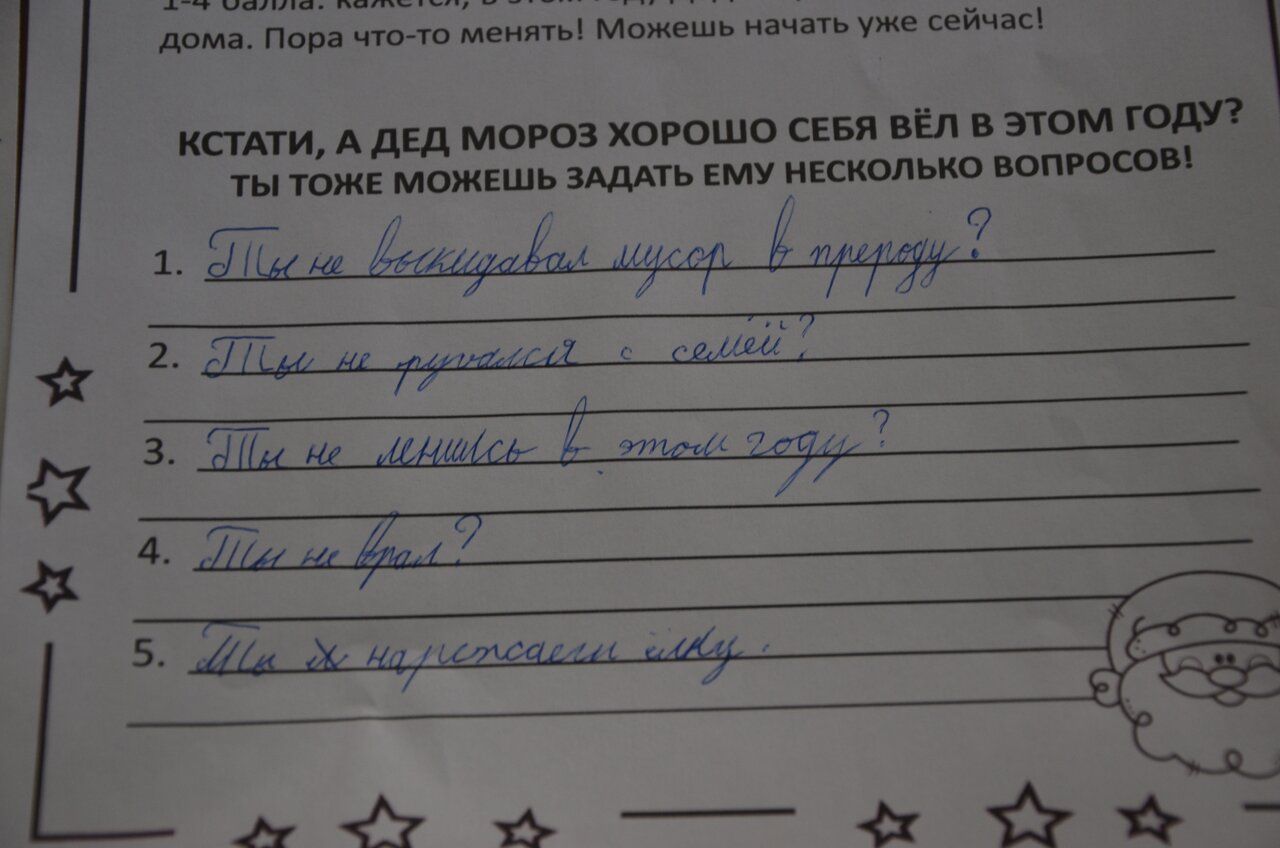 дома. Пора что-то менять! Можешь начать уже сейчас!
КСТАТИ, А ДЕД МОРОЗ ХОРОШО СЕБЯ ВЁЛ В ЭТОМ ГОДУ?
ТЫ ТОЖЕ МОЖЕШЬ ЗАДАТЬ ЕМУ НЕСКОЛЬКО ВОПРОСОВ!
1. Ты не выкидавал мусор в прероду?
2. Ты не ругался с семёй?
3. Ты не ленилсь в этом году?
4. Ты не врал?
5. Ты наряжаеш ёлку.